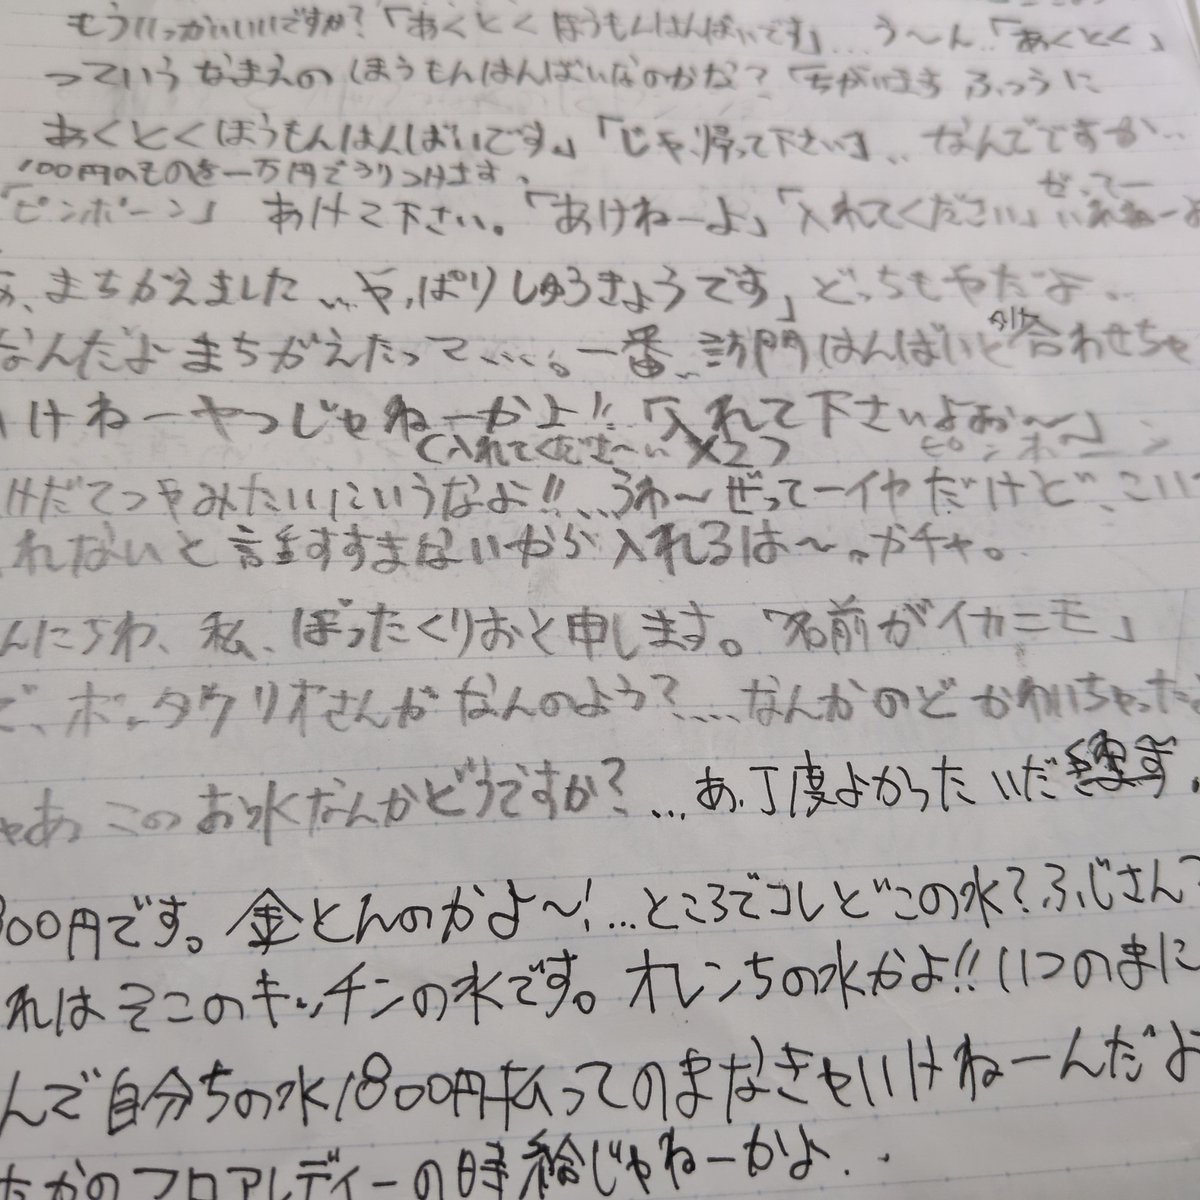 もういっかいいいですか?「あくとくほうもんはんばいです」...う～ん..「あくとく」
っていうなまえのほうもんはんばいなのかな?「ちがいますふつうに
あくとくほうもんはんばいです。」「じゃ、帰って下さい」...なんでですか...
100円のものを一万円でうりつけます、
「ピンポーン」あけて下さい。「あけねーよ」「入れてください」ぜってー
いれねーよ
、まちがえました...やっぱりしゅうきょうです」どっちもやだよ...
なんだよまちがえたって....。一番..訪問はんばいと
合わせちゃ
いけねーやつじゃねーかよ!!「入れて下さいよぉ～」
(入れてくださ～い×2つ
ピンポーン
けだてつやみたいにいうなよ!!...うわ～ぜってーイヤだけど、こい
れないと話すすまないから入れるは～..ガチャ。
んにちわ、私、ぼったくりおと申します。「名前がイカニモ」
で、ボッタクリオさんがなんのよう?....なんかのどかわいちゃった
ゃあこのお水なんかどうですか?...あ、丁度よかったいただきます
800円です。金とんのかよ～!...ところでコレどこの水?ふじさん
れはそこのキッチンの水です。オレんちの水かよ!!いつのまに
んで自分ちの水1800円払ってのまなきゃいけねーんだよ
たかのフロアレディーの時給じゃねーかよ..